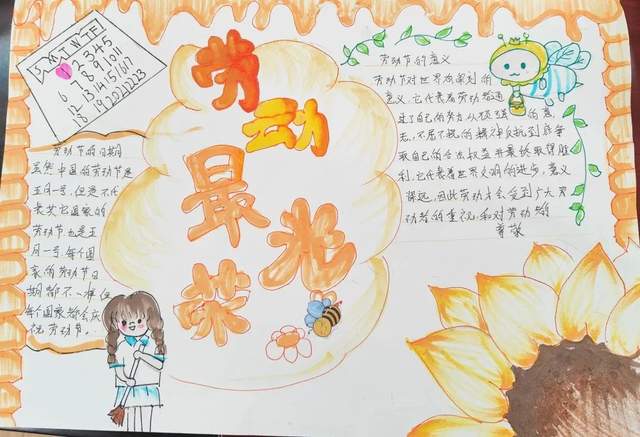 S M T W T F
1 2 3 4 5
6 7 8 9 10 11
12 13 14 15 16 17
18 19 20 21 22 23
劳动最光荣
劳动节的日期
虽然中国的劳动节是
五月一号,但是不代
表其它国家的
劳动节也是五
月一号,每个国
家的劳动节日
期都不一样,但
每个国家都会庆
祝劳动节。
劳动节的意义
劳动节对世界有深刻的
意义,它代表着劳动者通
过了自己的努力从顽强的意
志、不屈不挠的精神
取自己的合法权益并最终取得胜
利,它代表着世界文明的进步,意义
深远,因此劳动才会受到广大劳
动者的重视,和对劳动者的
尊敬